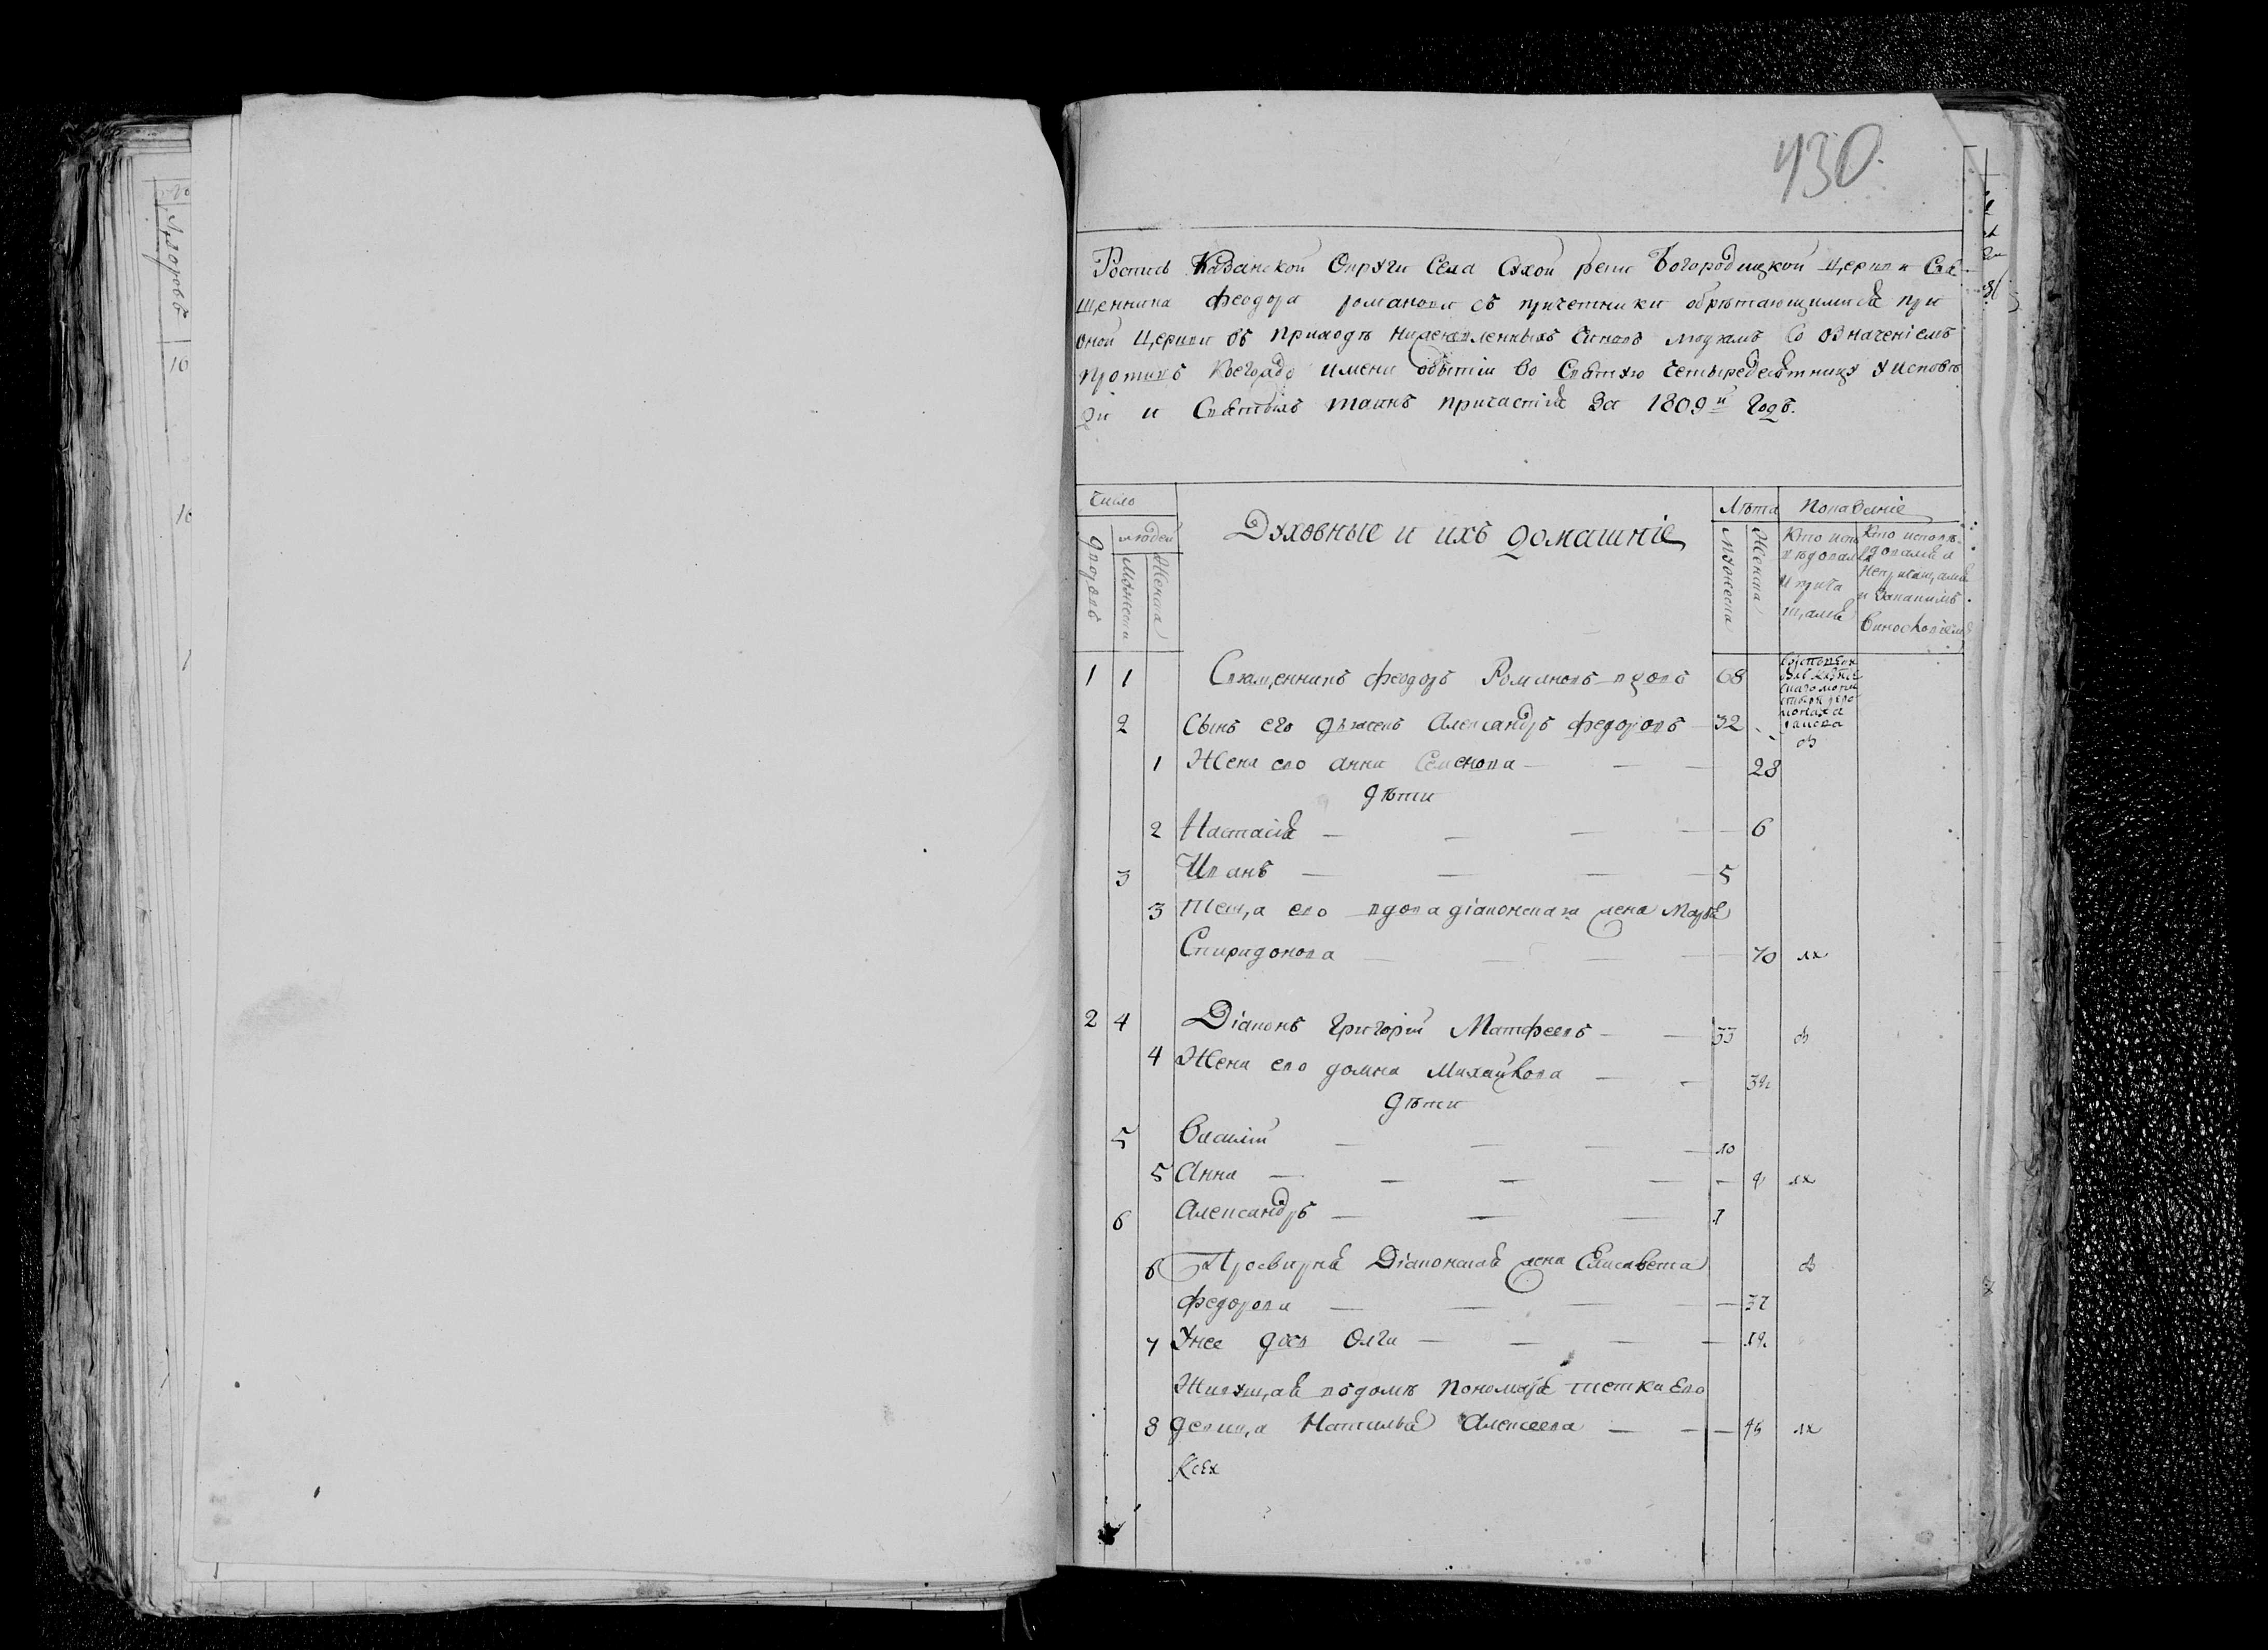 430.
Роспись Казанской Округи Села Сухой реки Богородицкой церкви Свя-
щенника Феодора Романова съ причетники обрѣтающимися при
оной церкви въ приходѣ нижеявленныхъ чиновъ людямъ со означеніемъ
противъ коегождо имени о бытіи во Святую четыредесятницу у исповѣ
ди и Святыхъ таинъ причастія за 1809й годъ.
Число
Лѣта Показаніе
людей
Духовные и ихъ домашніе
дворовъ
мужеска
женска
мужеска
женска
Кто испо
вѣдовался
и прича
щался
Кто исповѣ-
довался а
непричащался
и за какимъ
винословіемъ
1 1 Священникъ Феодоръ Романовъ вдовъ 68
2 Сынъ его дьячекъ Александръ Федоровъ 32
1 Жена его Анна Семенова 28
дѣти
2 Настасія 6
3 Иванъ 5
3 Теща его вдова діаконская жена Марья
Спиридонова 70
2 4 Діаконъ Григорій Матфеевъ 33
4 Жена его Домна Михайлова
дѣти
5 Василій 10
5 Анна
6 Александръ 1
6 Просвирня Діаконская жена Елисавета
Федорова 37
7 У нее дочь Олга
Живущая в домѣ пономаря тетка его
8 девица Наталья Алексеева 45